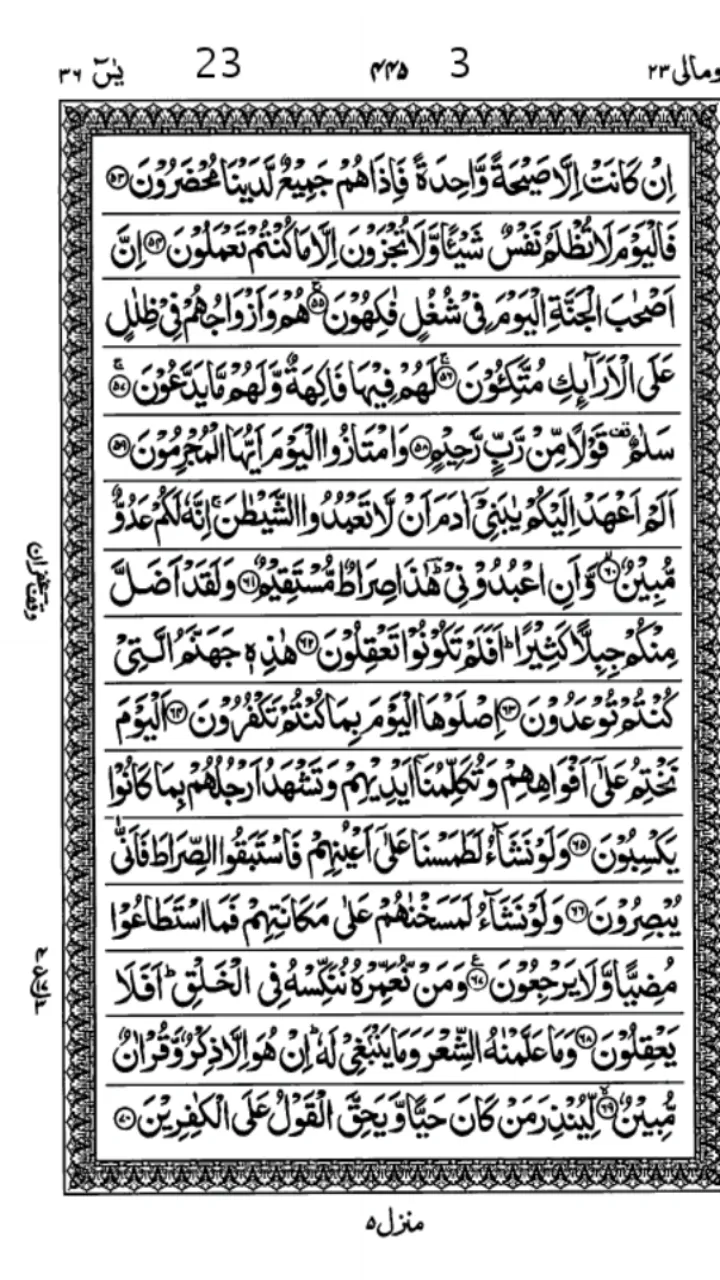 ومالی ۲۳ 3 ۴۴۵ 23 یٰسٓ ۳۶
اِنْ كَانَتْ اِلَّا صَيْحَةً وَّاحِدَةً فَاِذَا هُمْ جَمِيْعٌ لَّدَيْنَا مُحْضَرُوْنَ ﴿۵۳﴾
فَالْيَوْمَ لَا تُظْلَمُ نَفْسٌ شَيْـًٔا وَّلَا تُجْزَوْنَ اِلَّا مَا كُنْتُمْ تَعْمَلُوْنَ ﴿۵۴﴾ اِنَّ
اَصْحٰبَ الْجَنَّةِ الْيَوْمَ فِيْ شُغُلٍ فٰكِهُوْنَ ﴿۵۵﴾ۚ هُمْ وَاَزْوَاجُهُمْ فِيْ ظِلٰلٍ
عَلَى الْاَرَآىِٕكِ مُتَّكِـُٔوْنَ ﴿۵۶﴾ۚ لَهُمْ فِيْهَا فَاكِهَةٌ وَّلَهُمْ مَّا يَدَّعُوْنَ ﴿۵۷﴾ۚ
سَلٰمٌ ࣞقف قَوْلًا مِّنْ رَّبٍّ رَّحِيْمٍ ﴿۵۸﴾ وَامْتَازُوا الْيَوْمَ اَيُّهَا الْمُجْرِمُوْنَ ﴿۵۹﴾
اَلَمْ اَعْهَدْ اِلَيْكُمْ يٰبَنِيْٓ اٰدَمَ اَنْ لَّا تَعْبُدُوا الشَّيْطٰنَ ۚ اِنَّهٗ لَكُمْ عَدُوٌّ
مُّبِيْنٌ ﴿۶۰﴾ۙ وَّاَنِ اعْبُدُوْنِيْ ؕ هٰذَا صِرَاطٌ مُّسْتَقِيْمٌ ﴿۶۱﴾ وَلَقَدْ اَضَلَّ
مِنْكُمْ جِبِلًّا كَثِيْرًا ؕ اَفَلَمْ تَكُوْنُوْا تَعْقِلُوْنَ ﴿۶۲﴾ هٰذِهٖ جَهَنَّمُ الَّتِيْ
كُنْتُمْ تُوْعَدُوْنَ ﴿۶۳﴾ اِصْلَوْهَا الْيَوْمَ بِمَا كُنْتُمْ تَكْفُرُوْنَ ﴿۶۴﴾ اَلْيَوْمَ
نَخْتِمُ عَلٰٓى اَفْوَاهِهِمْ وَتُكَلِّمُنَآ اَيْدِيْهِمْ وَتَشْهَدُ اَرْجُلُهُمْ بِمَا كَانُوْا
يَكْسِبُوْنَ ﴿۶۵﴾ وَلَوْ نَشَآءُ لَطَمَسْنَا عَلٰٓى اَعْيُنِهِمْ فَاسْتَبَقُوا الصِّرَاطَ فَاَنّٰى
يُبْصِرُوْنَ ﴿۶۶﴾ وَلَوْ نَشَآءُ لَمَسَخْنٰهُمْ عَلٰى مَكَانَتِهِمْ فَمَا اسْتَطَاعُوْا
مُضِيًّا وَّلَا يَرْجِعُوْنَ ﴿۶۷﴾ع وَمَنْ نُّعَمِّرْهُ نُنَكِّسْهُ فِي الْخَلْقِ ؕ اَفَلَا
يَعْقِلُوْنَ ﴿۶۸﴾ وَمَا عَلَّمْنٰهُ الشِّعْرَ وَمَا يَنْۢبَغِيْ لَهٗ ؕ اِنْ هُوَ اِلَّا ذِكْرٌ وَّقُرْاٰنٌ
مُّبِيْنٌ ﴿۶۹﴾ۙ لِّيُنْذِرَ مَنْ كَانَ حَيًّا وَّيَحِقَّ الْقَوْلُ عَلَى الْكٰفِرِيْنَ ﴿۷۰﴾
وقف غفران
منزل ۵